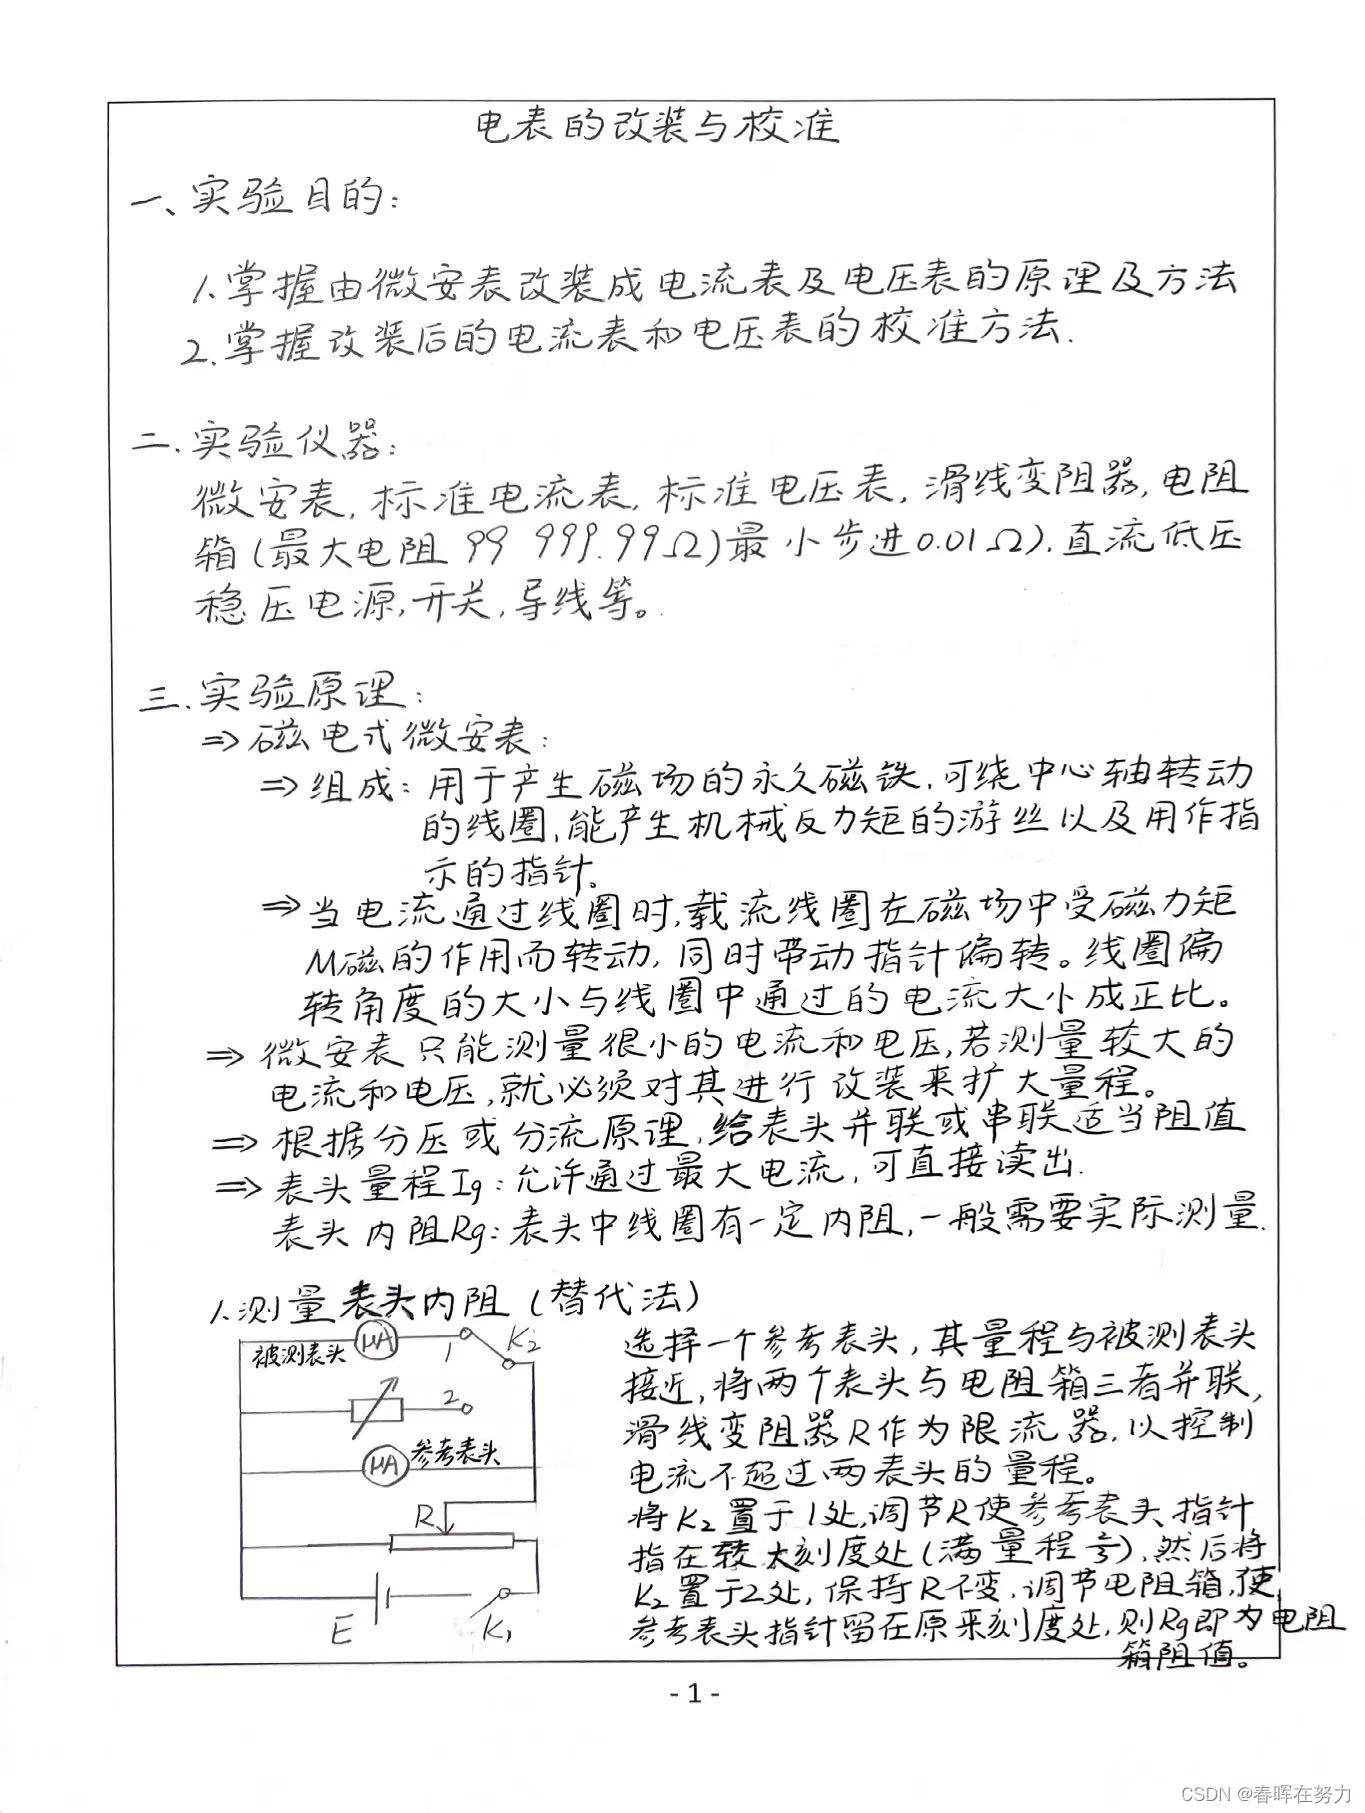 电表的改装与校准
一、实验目的:
1.掌握由微安表改装成电流表及电压表的原理及方法
2.掌握改装后的电流表和电压表的校准方法.
二.实验仪器:
微安表,标准电流表,标准电压表,滑线变阻器,电阻
箱(最大电阻 99 999.99Ω)最小步进0.01Ω).直流低压
稳压电源,开关,导线等。
三.实验原理:
⇒磁电式微安表:
⇒组成:用于产生磁场的永久磁铁,可绕中心轴转动
的线圈,能产生机械反力矩的游丝以及用作指
示的指针。
⇒当电流通过线圈时,载流线圈在磁场中受磁力矩
M磁的作用而转动,同时带动指针偏转。线圈偏
转角度的大小与线圈中通过的电流大小成正比。
⇒微安表只能测量很小的电流和电压,若测量较大的
电流和电压,就必须对其进行改装来扩大量程。
⇒根据分压或分流原理,给表头并联或串联适当阻值
⇒表头量程Ig:允许通过最大电流,可直接读出.
表头内阻Rg:表头中线圈有一定内阻,一般需要实际测量.
1.测量表头内阻(替代法)
被测表头
μA
1
K2
2
μA
参考表头
R
E
K1
选择一个参考表头,其量程与被测表头
接近,将两个表头与电阻箱三者并联,
滑线变阻器R作为限流器,以控制
电流不超过两表头的量程。
将K2置于1处,调节R使参考表头指针
指在较大刻度处(满量程亏),然后将
K2置于2处,保持R不变,调节电阻箱,使
参考表头指针留在原来刻度处,则Rg即为电阻
箱阻值。
- 1 -
CSDN @春晖在努力